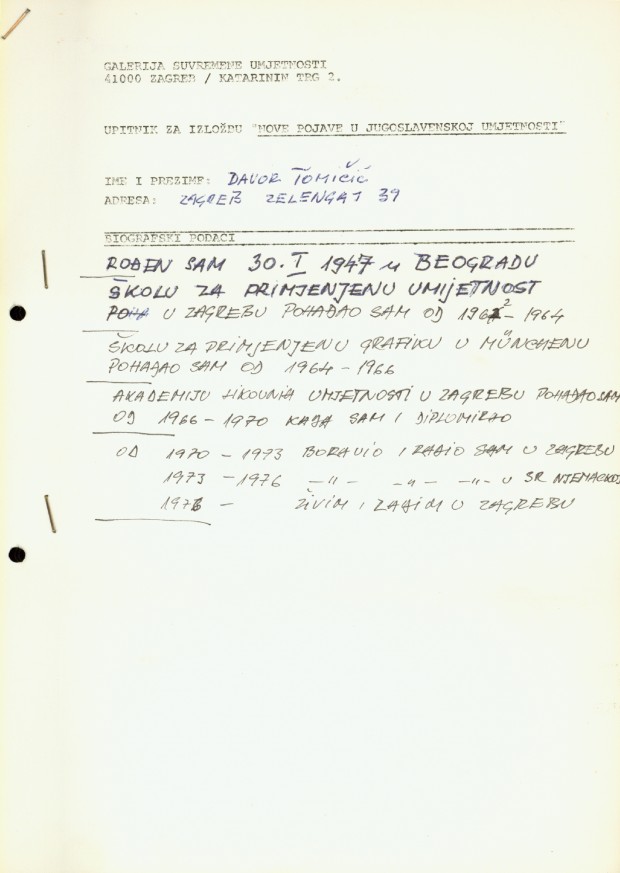 GALERIJA SUVREMENE UMJETNOSTI
41000 ZAGREB / KATARININ TRG 2.
UPITNIK ZA IZLOŽBU "NOVE POJAVE U JUGOSLAVENSKOJ UMJETNOSTI"
IME I PREZIME: DAVOR TOMIČIĆ
ADRESA: ZAGREB ZELENGAT 39
BIOGRAFSKI PODACI
ROĐEN SAM 30. I 1947 u BEOGRADU
ŠKOLU ZA PRIMJENJENU UMIJETNOST
U ZAGREBU POHAĐAO SAM OD 1962 - 1964
ŠKOLU ZA PRIMJENJENU GRAFIKU U MÜNCHENU
POHAĐAO SAM OD 1964 - 1966
AKADEMIJU LIKOVNIH UMJETNOSTI U ZAGREBU POHAĐAO SAM
OD 1966 - 1970 KADA SAM I DIPLOMIRAO
OD 1970 - 1973 BORAVIO I RADIO SAM U ZAGREBU
1973 - 1976 -"- -"- -"- U SR NJEMAČKOJ
1976 - ŽIVIM I RADIM U ZAGREBU